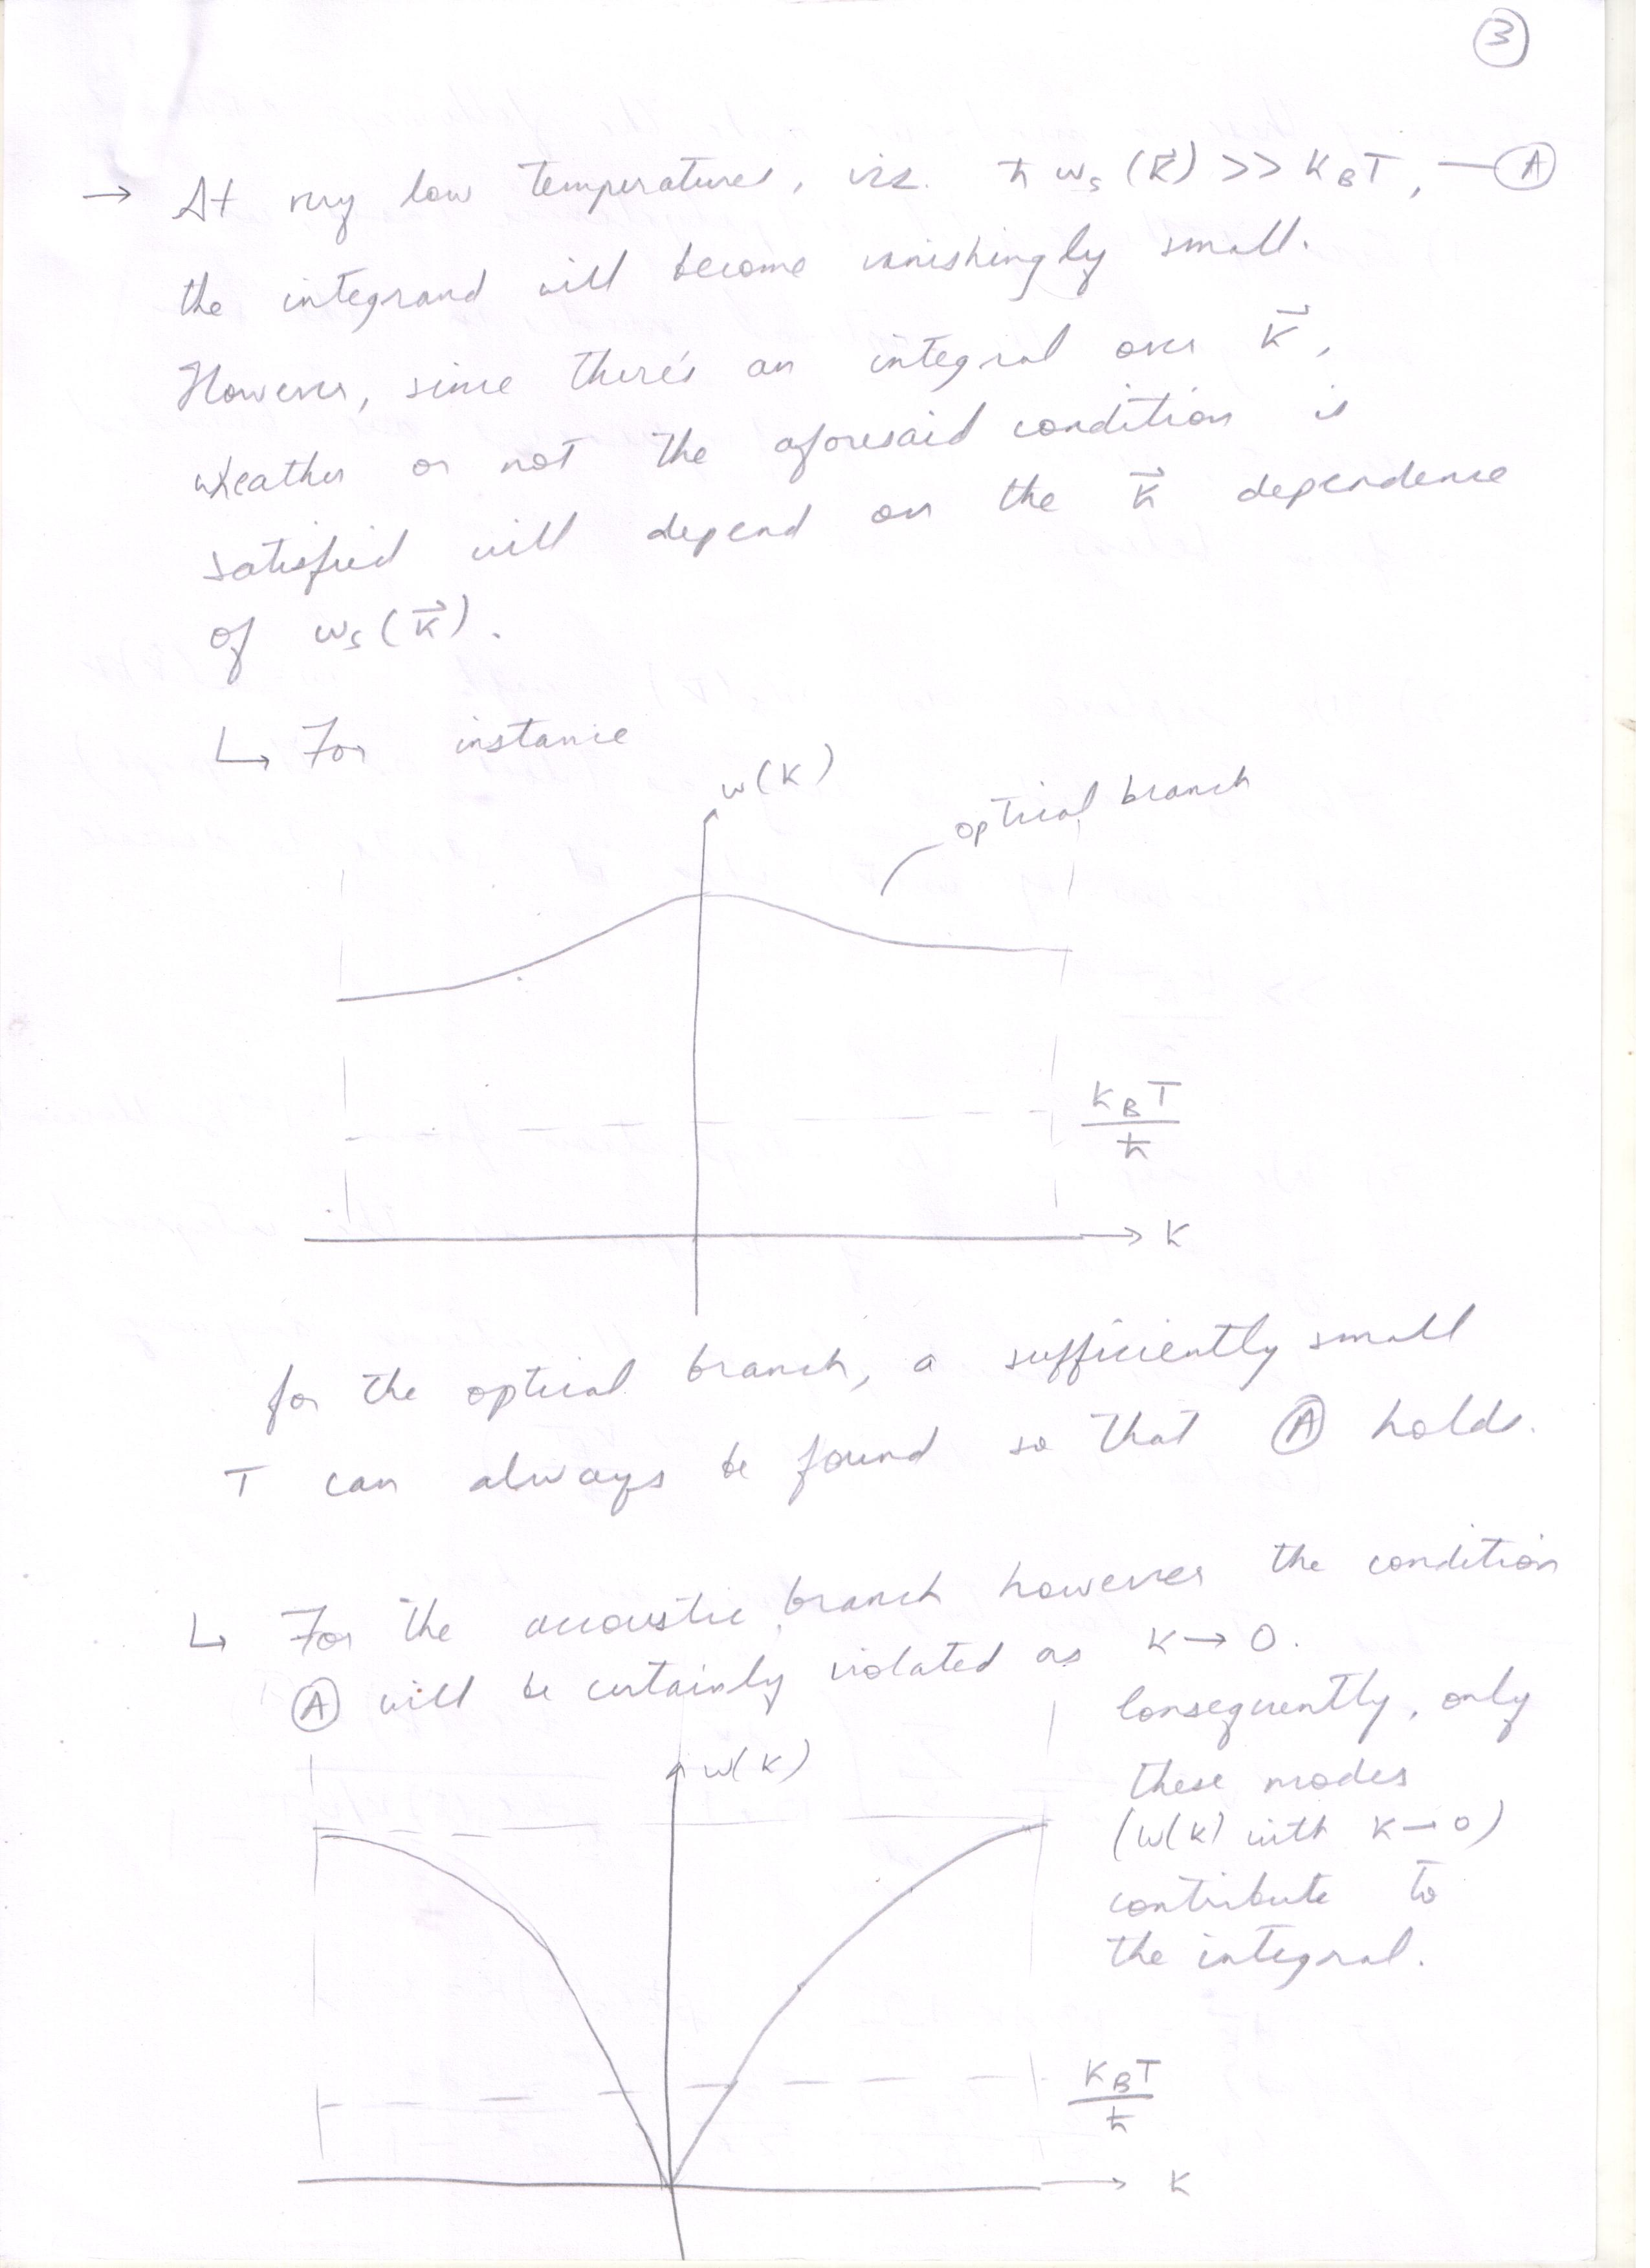 3
→ At very low temperatures, viz. ħ ωs (k⃗) >> KBT, — A
the integrand will become vanishingly small.
However, since there's an integral over k⃗,
wheather or not the aforesaid condition is
satisfied will depend on the k⃗ dependence
of ωs(k⃗).
↳ For instance
ω(k)
optical branch
KBT
ħ
→ k
for the optical branch, a sufficiently small
T can always be found so that A holds.
↳ For the accoustic branch however the condition
A will be certainly violated as k → 0.
Consequently, only
these modes
(ω(k) with k → 0)
contribute to
the integral.
ω(k)
KBT
ħ
→ k